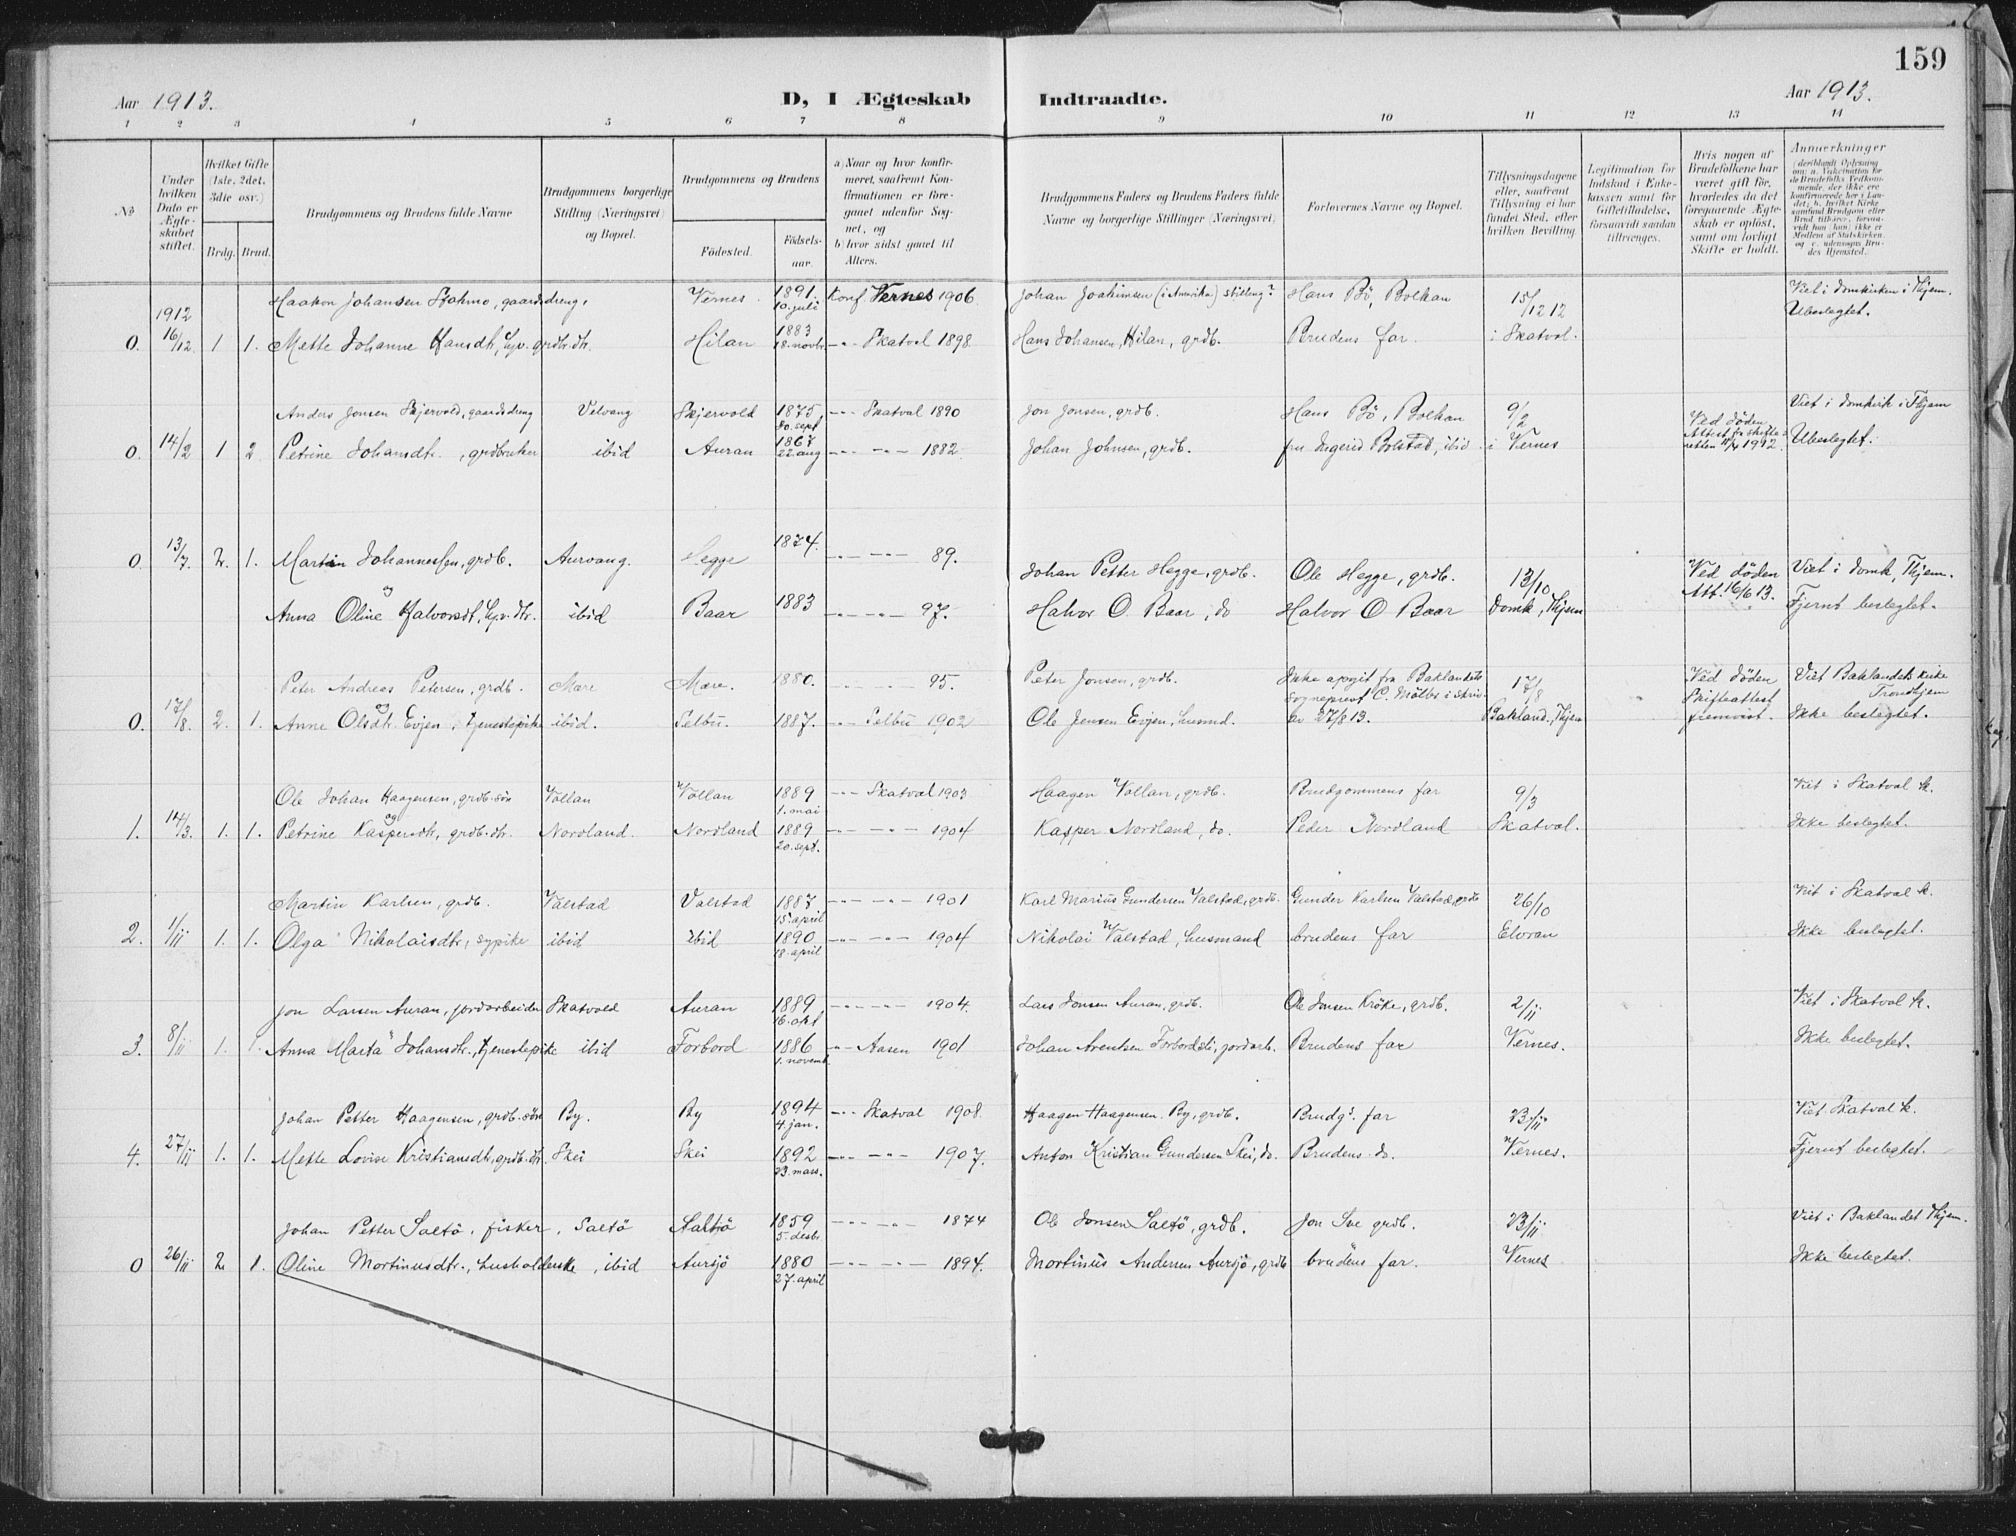 159
Aar 1913.
D, I Ægteskab Indtraadte.
Aar 1913.
1 2 3 4 5 6 7 8 9 10 11 12 13 14
No
Under hvilken Dato er Ægteskabet stiftet.
Hvilket Gifte (1ste, 2det, 3die osv.)
Brdg. Brud.
Brudgommens og Brudens fulde Navne
Brudgommens borgerlige Stilling (Næringsvei) og Bopæl.
Brudgommens og Brudens
Fødested.
Fødselsaar.
a) Naar og hvor konfirmeret, saafremt Konfirmationen er foregaaet udenfor Sognet, og
b) hvor sidst gaaet til Alters.
Brudgommens Faders og Brudens Faders fulde Navne og borgerlige Stillinger (Næringsvei)
Forlovernes Navne og Bopæl.
Tillysningsdagene eller, saafremt Tillysning ei har fundet Sted, efter hvilken Bevilling.
Legitimation for Indskud i Enkekassen samt for Giftetilladelse, forsaavidt saadan tiltrænges.
Hvis nogen af Brudefolkene har været gift før, hvorledes da det foregaaende Ægteskab er opløst, samt om lovligt Skifte er holdt.
Anmærkninger
Haakon Johansen, gaardsdreng. Vernes 1891 10. juli Konf Vernes 1906 Johan Joakimsen (i Amerika) stilling? Hans Bö, Bolkan 15/12 12 Viet i domkirken i Thjem.
0. 1912 16/12 1 1. Mette Johanne Hansdtr, grdbr. dtr. Hilan 1883 18. novbr. -"- Skatval 1898. Hans Johansen, Hilan, grdb. Brudens far. i Skatval. Ubeslegtet.
Anders Jonsen Skjervold, gaardsdreng Velvang Skjervold 1875, 30. sept -"- Skatval 1890 Jon Jonsen, grdb. Hans Bö, Bolkan 9/2 Ved döden Viet i domkirk i Thjem
0. 14/2 1 2 Petrine Johansdtr., grdbruker ibid Auran 1867 22. aug -"- -"- 1882. Johan Johnsen, grdb. fru Ingerid Bolstad, ibid i Vernes Attest fra skifteretten Ubeslegtet.
0. 13/7. 2. 1. Martin Johannessen, grdb. Aurvang. Hegge 1874. -"- -"- 89. Johan Petter Hegge, grdb. Ole Hegge, grdb. 13/10 Ved döden Viet i domk, Thjem.
og
Anna Oline Halvorsdt, dtr. ibid Baar 1883 -"- -"- 97. Halvor O. Baar, do Halvor O Baar Domk, Thjem Att. 16/6 13. Fjernt beslegtet.
Peter Andreas Petersen, grdb. Mære Mære. 1880. -"- -"- 95. Peter Jonsen, grdb. Ikke opgit fra Baklandets sogneprest C. Mølbs i skriv 17/8 Ved döden Viet Baklandets kirke Trondhjem
og
0. 17/8. 2. 1. Anne Olsdtr. Evjen, tjenestepike ibid. Selbu. 1887. -"- Selbu 1902 Ole Jensen Evjen, husmd. av 27/8 13. Bakland., Thjem Skifteattest fremvist. Ikke beslegtet.
Ole Johan Haagensen, grdb. sön Vollan Vollan 1889 1. mai -"- Skatval 1903 Haagen Vollan, grdb. Brudgommens far 9/3 Viet i Skatval k.
og
1. 14/3. 1. 1. Petrine Kaspersdtr, grdb. dtr. Nordland. Nordland 1889 20. sept. -"- -"- 1904 Kasper Nordland, do. Peder Nordland Skatval. Ikke beslegtet.
Martin Karlsen, grdb. Valstad Valstad 1887 15. april -"- -"- 1901 Karl Marius Gundersen Valstad, grdb. Gunder Karlsen Valstad, grdb 26/10 Viet i Skatval k.
2. 1/11 1. 1. Olga Nikolaisdtr, sypike ibid ibid 1890 18. april -"- -"- 1904 Nikolai Valstad, husmand brudens far Elvran Ikke beslegtet.
Jon Larsen Auran, jordarbeider Skatvold Auran 1889 16. okt -"- -"- 1904. Lars Jonsen Auran, grdb. Ole Jonsen Kröke, grdb. 2/11 Viet i Skatval k.
3. 8/11 1. 1. Anna Marta Johansdtr., tjenestepike ibid Forbord 1886 1. novemb -"- Aasen 1901 Johan Arentsen Forbord, jordarb. Brudens far Vernes. Ikke beslegtet.
Johan Petter Haagensen, grdb. sön By. By 1894 4 jan. -"- Skatval 1908 Haagen Haagensen By, grdb. Brudgs. far 23/11 Viet Skatval k.
4. 27/11 1. 1. Mette Lovise Kristiansdtr, grdb. dtr. Skei Skei 1892 23. mars. -"- -"- 1907. Anton Kristian Gundersen Skei, do. Brudens do. Vernes. Fjernt beslegtet.
Johan Petter Saltö, fisker, Saltö Saltö 1859 5. desbr. -"- -"- 1874 Ole Jonsen Saltö, grdb. Jon Sve grdb. 23/11 Viet i Baklandet Thjem.
0 26/11 2 1. Oline Mortinusdtr., husholderske, ibid Aursjö 1880 27. april -"- -"- 1894. Mortinus Andersen Aursjö, grdb brudens far. Vernes Ikke beslegtet.